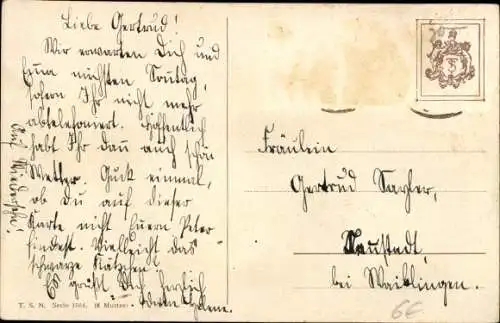 Liebe Gertrud!
Wir erwarten Dich und
zum nächsten Sonntag,
sofern Ihr nicht mehr
abtelefoniert. Hoffentlich
habt Ihr dan auch schön
Wetter. Guck einmal,
ob Du auf dieser
Karte nicht Euern Peter
findest. Vielleicht das
schwarze Kätzchen?
Es grüßt Dich herzlich
Deine Helene.
Auf Wiedersehn!
T. S. N. Serie 1504. (6 Muster)
Fräulein
Gertrud Sayler,
Neustadt,
bei Waiblingen.
6€